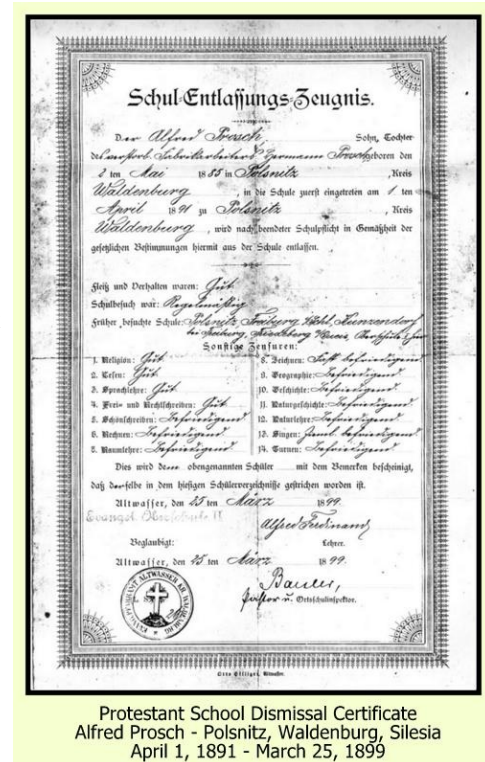 Schul-Entlassungs-Zeugnis.
Der Alfred Prosch Sohn, Tochter
des verstorb. Fabrikarbeiters Hermann Prosch geboren den
2 ten Mai 1885 in Polsnitz, Kreis
Waldenburg, in die Schule zuerst eingetreten am 1 ten
April 1891 zu Polsnitz, Kreis
Waldenburg, wird nach beendeter Schulpflicht in Gemäßheit der
gesetzlichen Bestimmungen hiermit aus der Schule entlassen.
Fleiß und Verhalten waren: Gut
Schulbesuch war: Regelmäßig
Früher besuchte Schule: Polsnitz, Freiburg, Kunzendorf
bei Freiburg,
Sonstige Zensuren:
1. Religion: Gut
2. Lesen: Gut
3. Sprachlehre: Gut
4. Frei- und Rechtschreiben: Gut
5. Schönschreiben: Befriedigend
6. Rechnen: Befriedigend
7. Raumlehre: Befriedigend
8. Zeichnen: Fast befriedigend
9. Geographie: Befriedigend
10. Geschichte: Befriedigend
11. Naturgeschichte: Befriedigend
12. Naturlehre: Befriedigend
13. Singen: Ziml. befriedigend
14. Turnen: Befriedigend
Dies wird dem obengenannten Schüler mit dem Bemerken bescheinigt,
daß derselbe in dem hiesigen Schülerverzeichnisse gestrichen worden ist.
Altwasser, den 25 ten März 1899.
Evangel. Oberschule II
Alfred Ferdinand
Beglaubigt: Lehrer.
Altwasser, den 25 ten März 1899.
Pastor u. Ortsschulinspektor.
Altwasser.
Protestant School Dismissal Certificate
Alfred Prosch - Polsnitz, Waldenburg, Silesia
April 1, 1891 - March 25, 1899